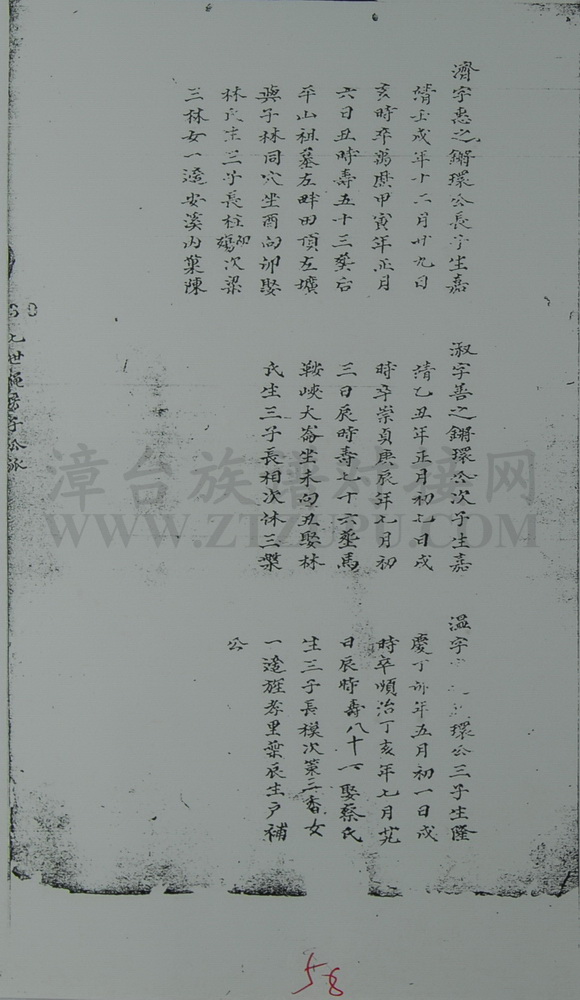 濟字惠之鏘環公長子生嘉
靖壬戌年十二月廿九日
亥時卒萬曆甲寅年正月
六日丑時壽五十三葬后
平山祖墓左畔田頂左壙
與子林同穴坐酉向卯娶
林氏生三子長柱初殤次梁
三林女一適安溪內葉陳
淑字善之鏘環公次子生嘉
靖乙丑年正月初七日戌
時卒崇貞庚辰年七月初
三日辰時壽七十六塟馬
鞍峽大崙坐未向丑娶林
氏生三子長相次休三檠
溫字環公三子生隆
慶丁卯年五月初一日戌
時卒順治丁亥年七月
日辰時壽八十一娶蔡氏
生三子長模次第三香女
一適旌孝里葉辰生戶補
公
七世
漳台族譜对接网
WWW.ZTZUPU.COM
58